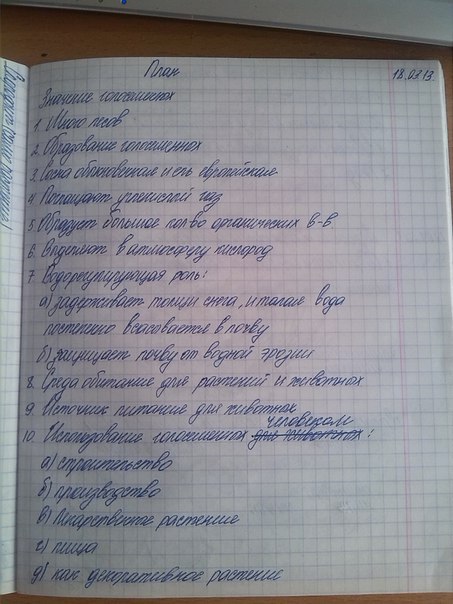 План 18.03.13.
Значение голосеменных
1. Много лесов
2. Образование голосеменных
3. Сосна обыкновенная и ель европейская
4 Поглощают углекислый газ
5 Образует большое кол-во органических в-в.
6. Выделяют в атмосферу кислород
7 Водорегулирующая роль:
а) задерживает толщи снега, и талая вода
постепенно всасовается в почву
б) защищает почву от водной эрозии
8. Среда обитание для растений и животных
9 Источник питание для животнах
человеком
10. Исползование голосеменных для животных:
а) строительство
б) производство
в) Лекарственное растение
г) пища
д) как декоративное растение